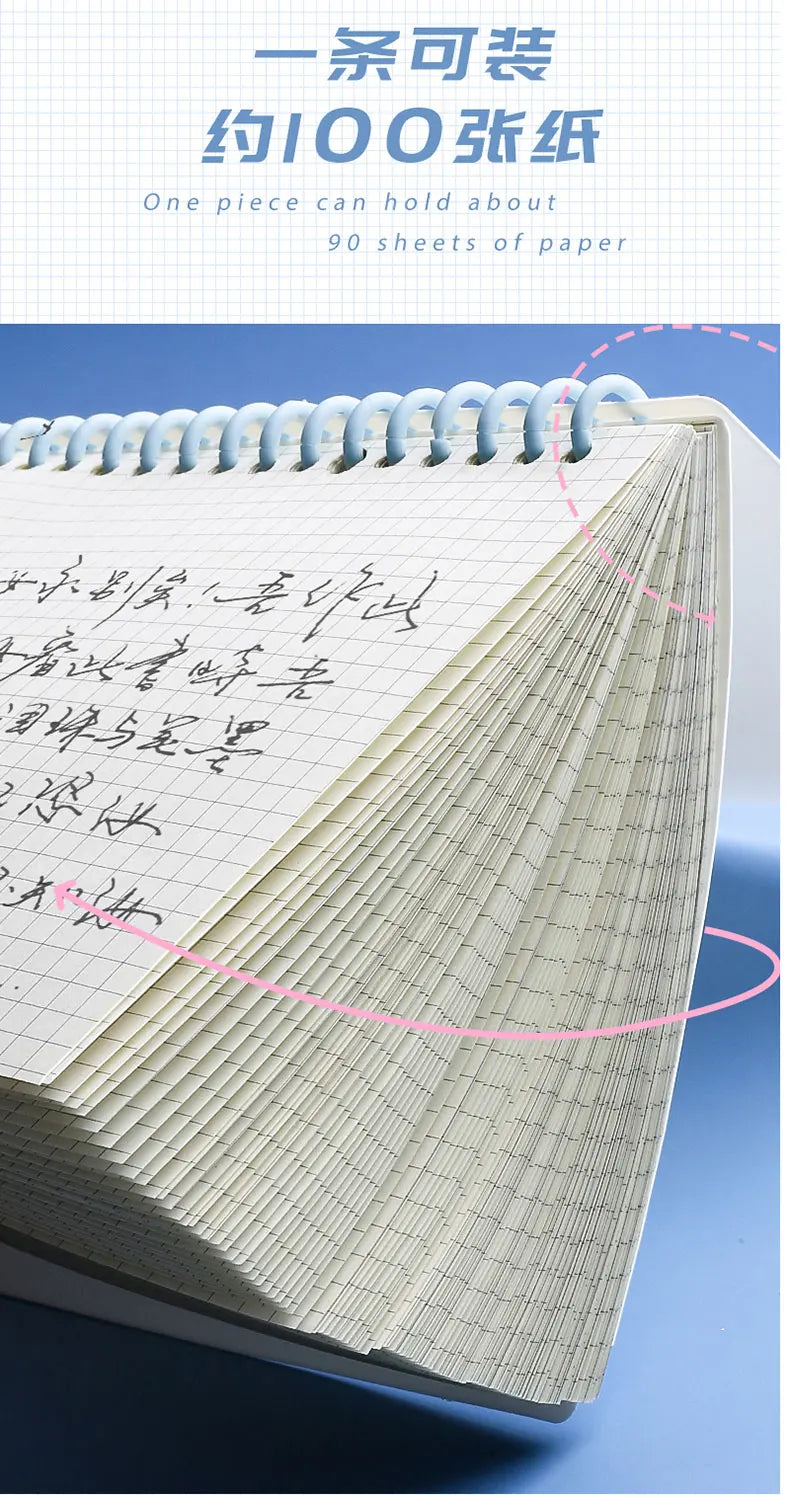 一条可装
约100张纸
One piece can hold about
90 sheets of paper
永别矣!吾作此
看此書時吾
泪珠与笔墨
恐汝